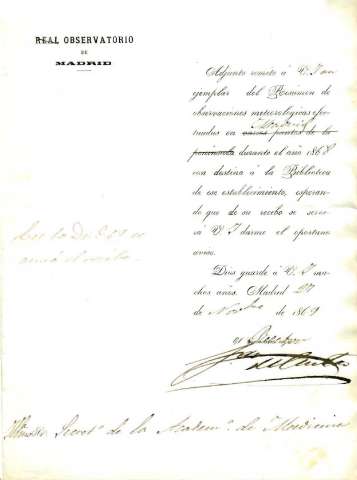 REAL OBSERVATORIO
DE
MADRID
Adjunto remito á V. I un
ejemplar del Resúmen de
observaciones meteorológicas efec-
tuadas en Madrid varios puntos de la
península durante el año 1868
con destino á la Biblioteca
de ese establecimiento, esperan-
do que de su recibo se servi-
rá V. I darme el oportuno
aviso.
Dios guarde á V. I mu-
chos años. Madrid 27
de Novbre de 1869
El Bibliotecario
Secret.º de la Academ.ª de Medicina